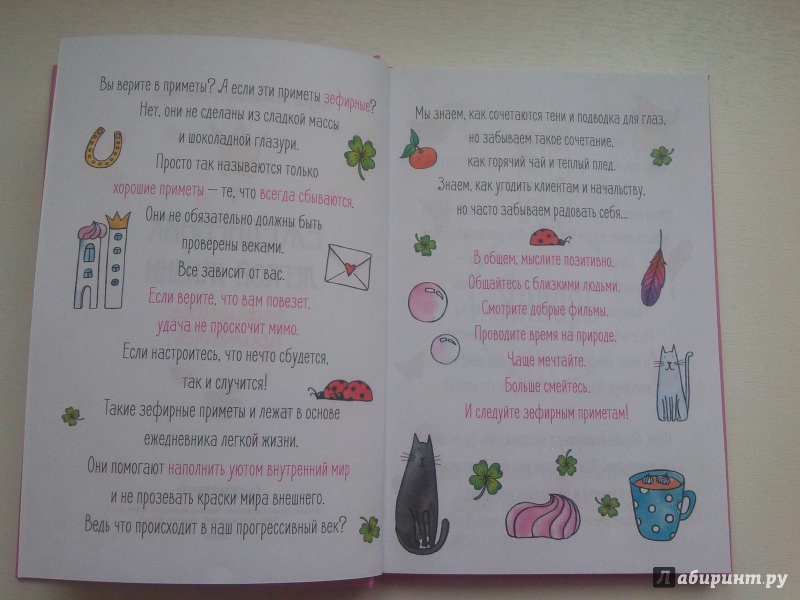 Вы верите в приметы? А если эти приметы зефирные?
Нет, они не сделаны из сладкой массы
и шоколадной глазури.
Просто так называются только
хорошие приметы – те, что всегда сбываются.
Они не обязательно должны быть
проверены веками.
Все зависит от вас.
Если верите, что вам повезет,
удача не проскочит мимо.
Если настроитесь, что нечто сбудется,
так и случится!
Такие зефирные приметы и лежат в основе
ежедневника легкой жизни.
Они помогают наполнить уютом внутренний мир
и не прозевать краски мира внешнего.
Ведь что происходит в наш прогрессивный век?
Мы знаем, как сочетаются тени и подводка для глаз,
но забываем такое сочетание,
как горячий чай и теплый плед.
Знаем, как угодить клиентам и начальству,
но часто забываем радовать себя...
В общем, мыслите позитивно.
Общайтесь с близкими людьми.
Смотрите добрые фильмы.
Проводите время на природе.
Чаще мечтайте.
Больше смейтесь.
И следуйте зефирным приметам!
Лабиринт.ру